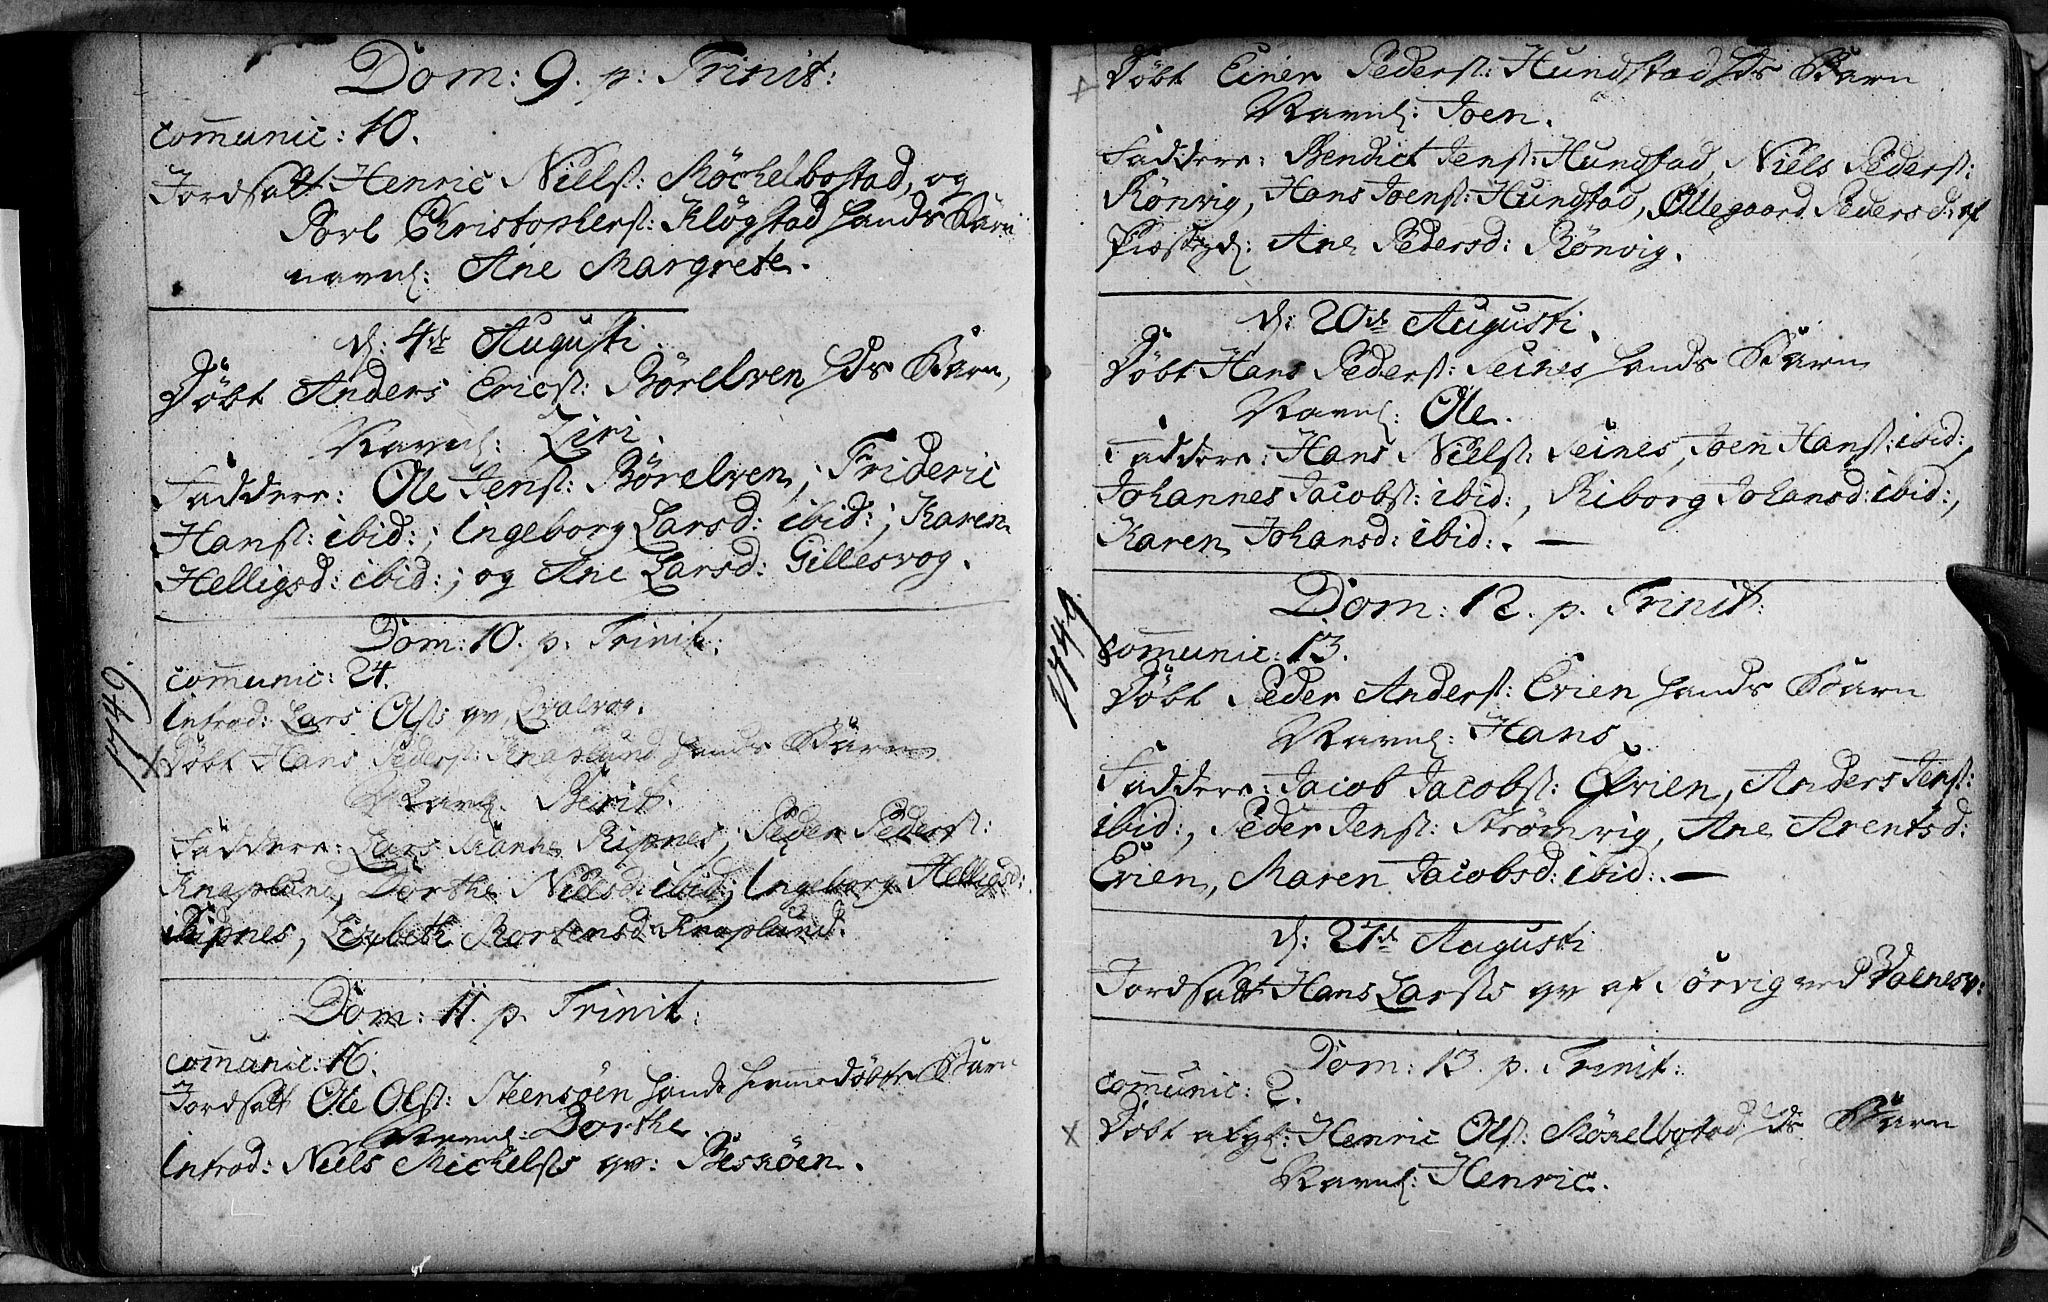 Dom: 9. p: Trinit:
comunic: 10.
Jordfatt Henric Nielsø: Möckelbostad, og
Povl Christophersø: Klögstad hands Barn
navnl: Ane Margrete.
d: 4de Augusti.
Döbt Anders Ericsø: Börelven hds Barn,
Navnl: Ziri.
Faddere: Ole Jensø: Börelven, Frideric
Hansø: ibid:; Ingeborg Larsd: ibid:; Karen
Helligsd: ibid:; og Ane Larsd: Gillesvog.
Dom: 10. p. Trinit:
comunic: 24.
1749.
Introd: Lars Olsøs qv, Qvalvog.
X Döbt Hans Pedersø: Knaplund hands Barn
Navnl. Birit.
Faddere: Lars Ripnes, Peder Pedersø:
Knaplund, Dorthe Nielsd: ibid; Ingeborg Helligsd:
Ripnes, Lizbeth Mortensd: Knaplund.
Dom: 11. p. Trinit:
comunic: 16.
Jordfatt Ole Olsø: Steensöen hands hiemmedöbte Barn
Navnl: Dorthe.
Introd: Niels Michelsøs qv: Besköen.
X Döbt Einer Pedersø: Hundstad hds Barn
Navnl: Joen.
Faddere: Bendict Jensø: Hundstad, Niels Pedersø:
Rönvig, Hans Joensø: Hundstad, Ollegaard Pedersd: af
Ane Pedersd: Rönvig.
d: 20de Augusti.
Döbt Hans Pedersø: Seines hands Barn
Navnl: Ole.
Faddere: Hans Nielsø: Seines, Joen Hansø: ibid:,
Johannes Jacobsø: ibid:, Riborg Johansd: ibid:,
Karen Johansd: ibid:.
1749.
Dom: 12. p. Trinit:
comunic: 13.
Döbt Peder Andersø: Evien hands Barn
Navnl: Hans.
Faddere: Jacob Jacobsø: Evien, Anders Jensø:
ibid:, Peder Jensø: Strömvig, Ane Arentsd:
Evien, Maren Jacobsd: ibid:.
d: 27de Augusti
Jordfatt Hans Larsøs qv af Sörvig ved Valnesv:
Dom: 13. p. Trinit:
comunic: 2.
X Döbt afgl: Henric Olsø: Möckelbostad hds Barn
Navnl: Henric.